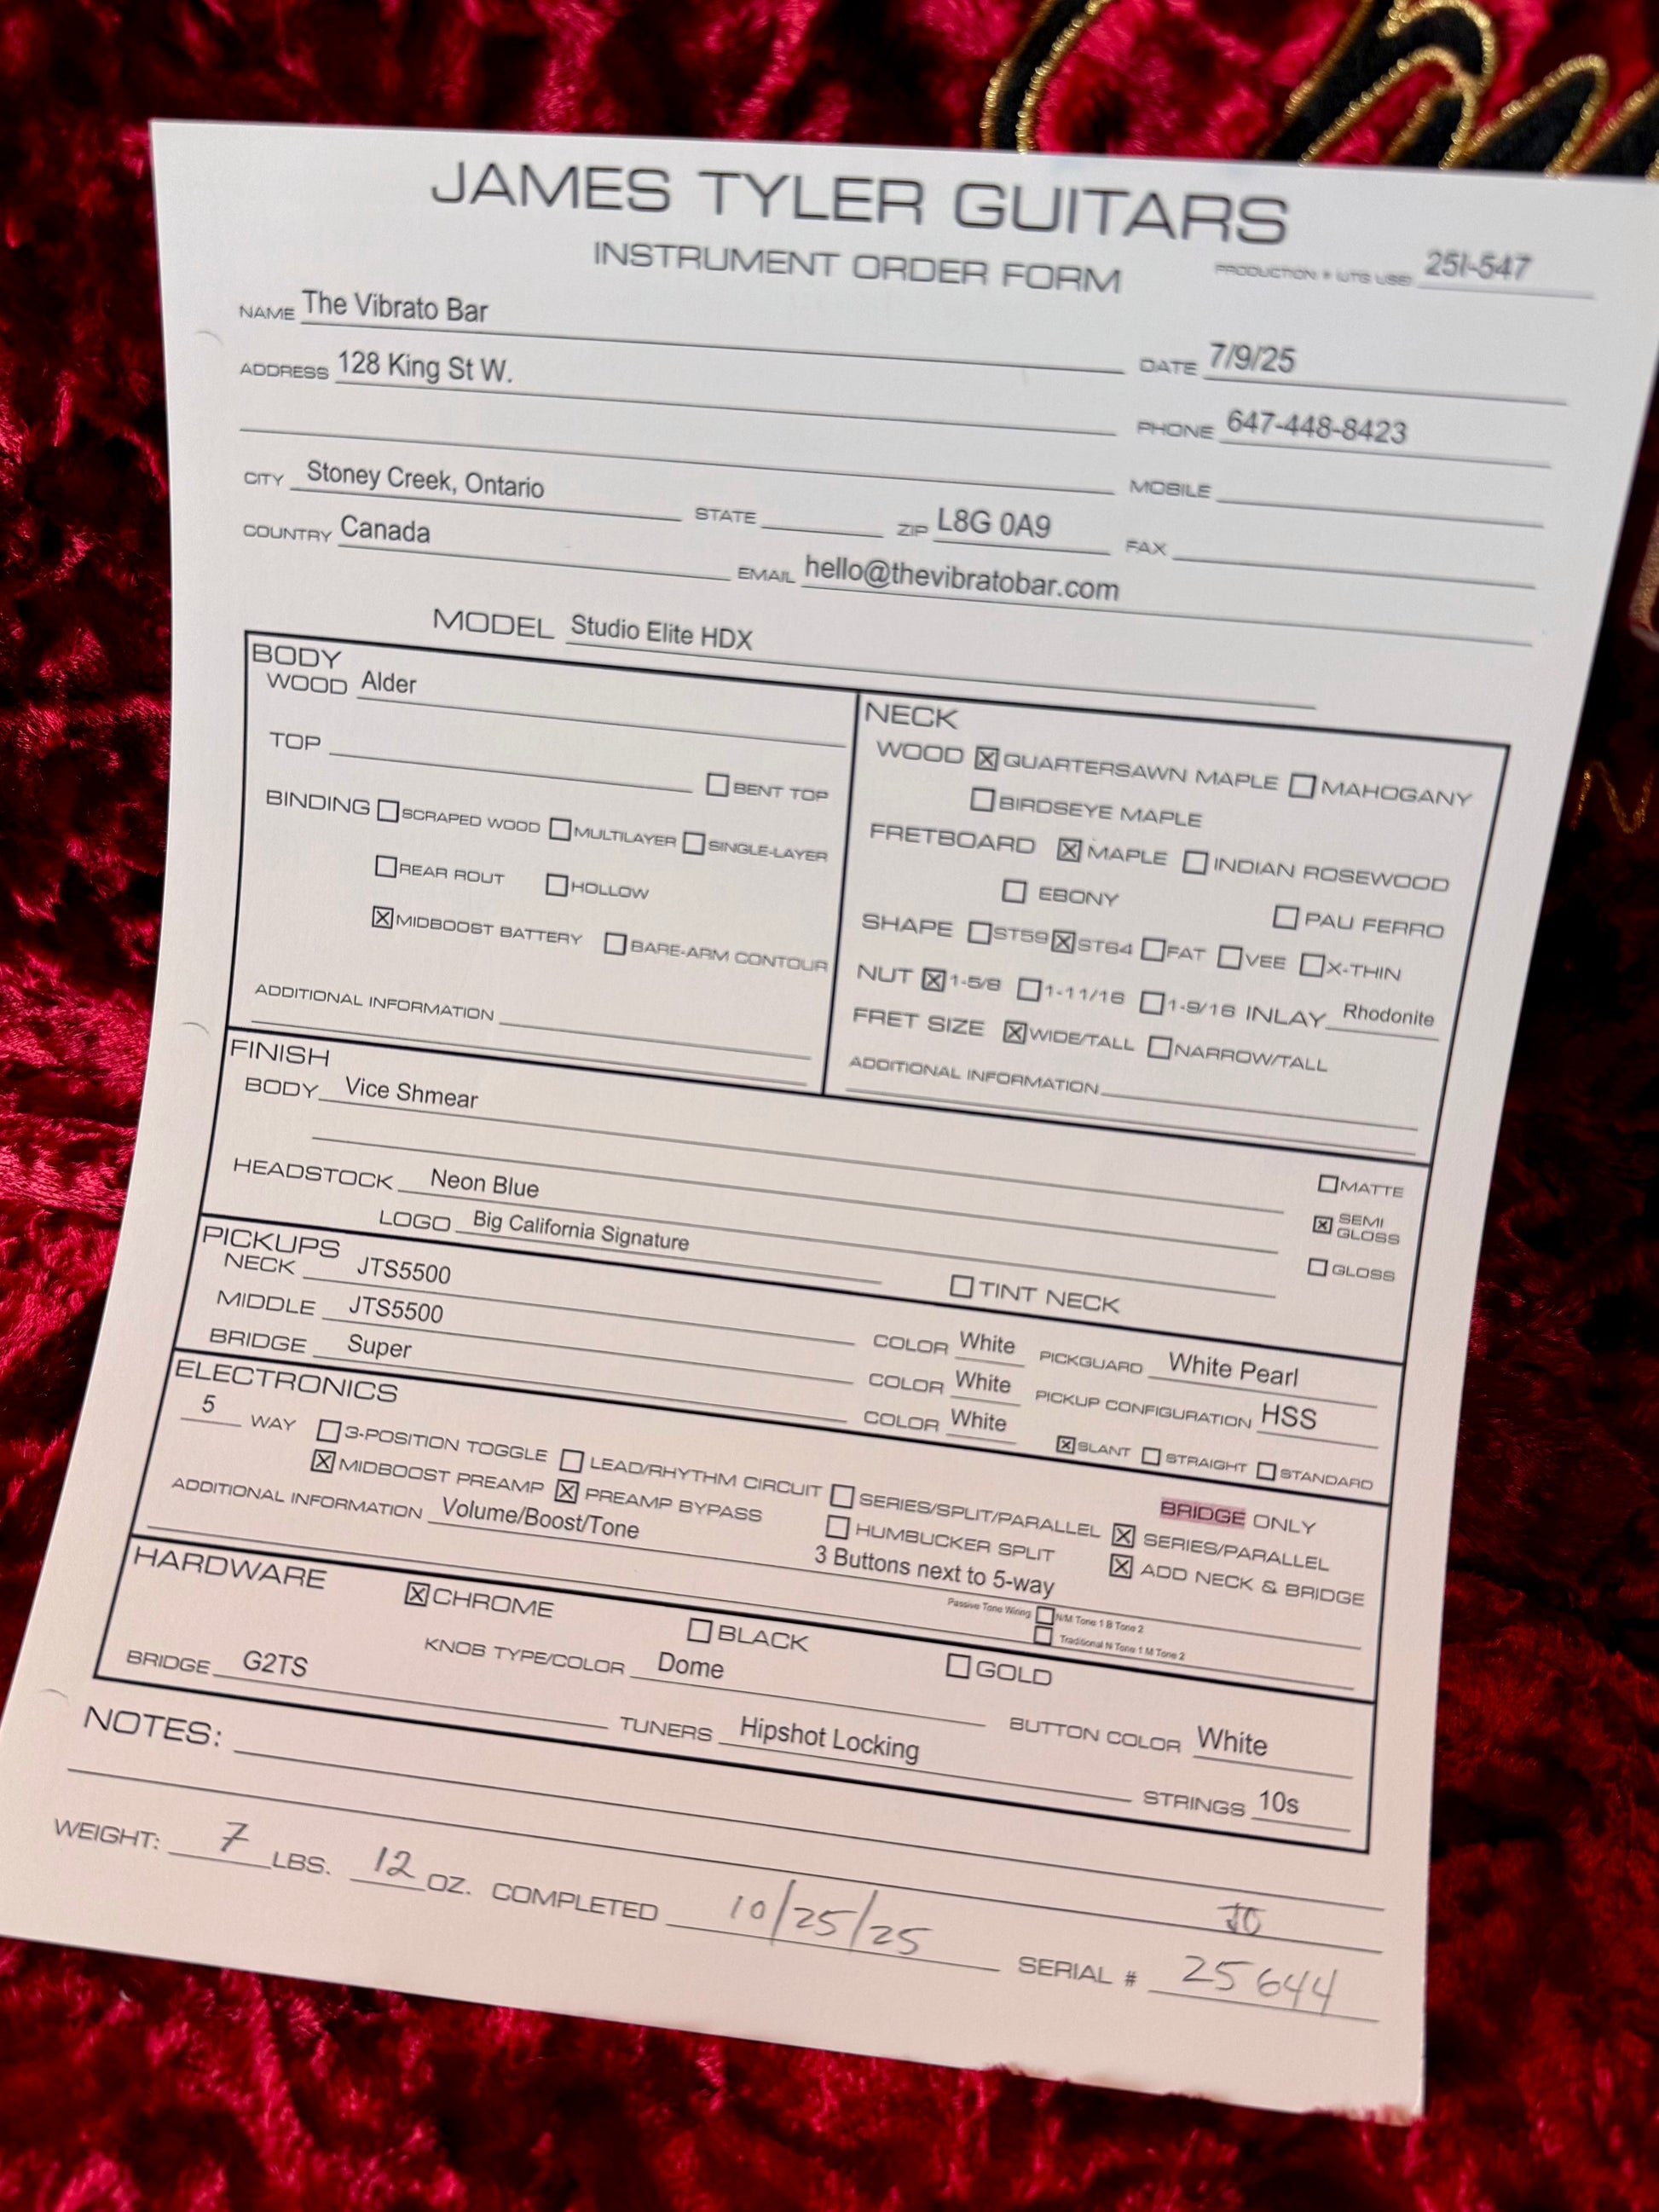 JAMES TYLER GUITARS
INSTRUMENT ORDER FORM
PRODUCTION # (JTG USE) 25I-547
NAME The Vibrato Bar
DATE 7/9/25
ADDRESS 128 King St W.
PHONE 647-448-8423
MOBILE
CITY Stoney Creek, Ontario STATE ZIP L8G 0A9
FAX
COUNTRY Canada EMAIL hello@thevibratobar.com
MODEL Studio Elite HDX
BODY
WOOD Alder
TOP ☐ BENT TOP
BINDING ☐ SCRAPED WOOD ☐ MULTILAYER ☐ SINGLE-LAYER
☐ REAR ROUT ☐ HOLLOW
☒ MIDBOOST BATTERY ☐ BARE-ARM CONTOUR
ADDITIONAL INFORMATION
NECK
WOOD ☒ QUARTERSAWN MAPLE ☐ MAHOGANY
☐ BIRDSEYE MAPLE
FRETBOARD ☒ MAPLE ☐ INDIAN ROSEWOOD
☐ EBONY ☐ PAU FERRO
SHAPE ☐ ST59 ☒ ST64 ☐ FAT ☐ VEE ☐ X-THIN
NUT ☒ 1-5/8 ☐ 1-11/16 ☐ 1-9/16 INLAY Rhodonite
FRET SIZE ☒ WIDE/TALL ☐ NARROW/TALL
ADDITIONAL INFORMATION
FINISH
BODY Vice Shmear
☐ MATTE
HEADSTOCK Neon Blue
☒ SEMI GLOSS
LOGO Big California Signature
☐ TINT NECK
☐ GLOSS
PICKUPS
NECK JTS5500 COLOR White PICKGUARD White Pearl
MIDDLE JTS5500 COLOR White PICKUP CONFIGURATION HSS
BRIDGE Super COLOR White ☒ SLANT ☐ STRAIGHT ☐ STANDARD
ELECTRONICS
5 WAY ☐ 3-POSITION TOGGLE ☐ LEAD/RHYTHM CIRCUIT ☐ SERIES/SPLIT/PARALLEL BRIDGE ONLY
☒ SERIES/PARALLEL
☒ MIDBOOST PREAMP ☒ PREAMP BYPASS ☐ HUMBUCKER SPLIT ☒ ADD NECK & BRIDGE
ADDITIONAL INFORMATION Volume/Boost/Tone 3 Buttons next to 5-way
Passive Tone Wiring ☐ N/M Tone 1 B Tone 2
☐ Traditional N Tone 1 M Tone 2
HARDWARE
☒ CHROME ☐ BLACK ☐ GOLD
KNOB TYPE/COLOR Dome BUTTON COLOR White
BRIDGE G2TS TUNERS Hipshot Locking STRINGS 10s
NOTES:
WEIGHT: 7 LBS. 12 OZ. COMPLETED 10/25/25 SERIAL # 25644